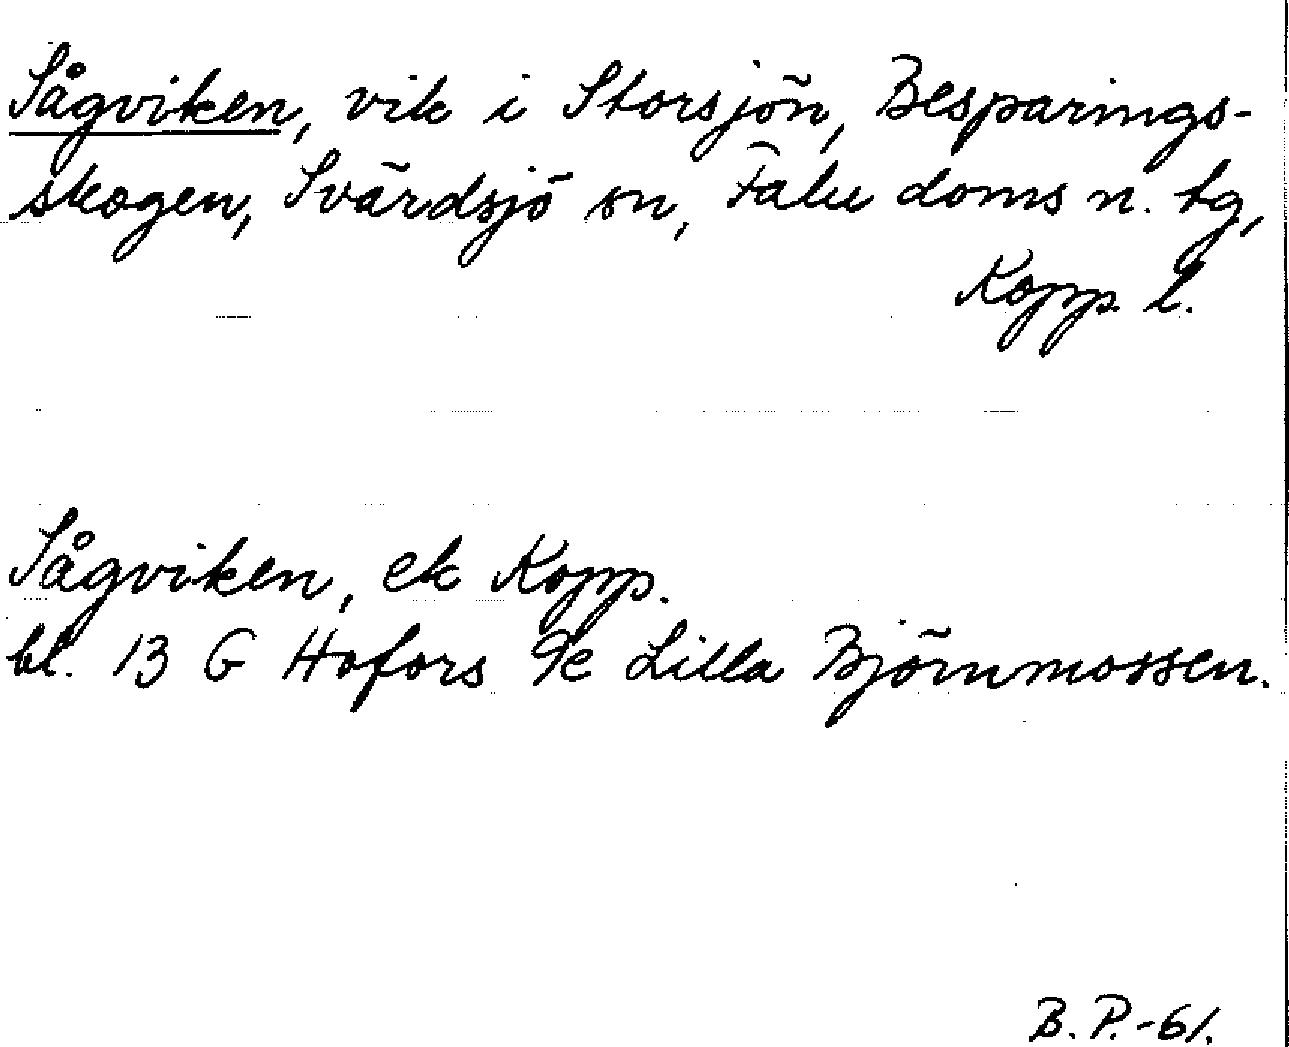 Sågviken, vik i Storsjön, Besparings-
skogen, Svärdsjö sn, Falu doms n. tg,
Kopp. l.
Sågviken, ek Kopp.
bl. 13 G Hofors 9e Lilla Björnmossen.
B. P.-61.